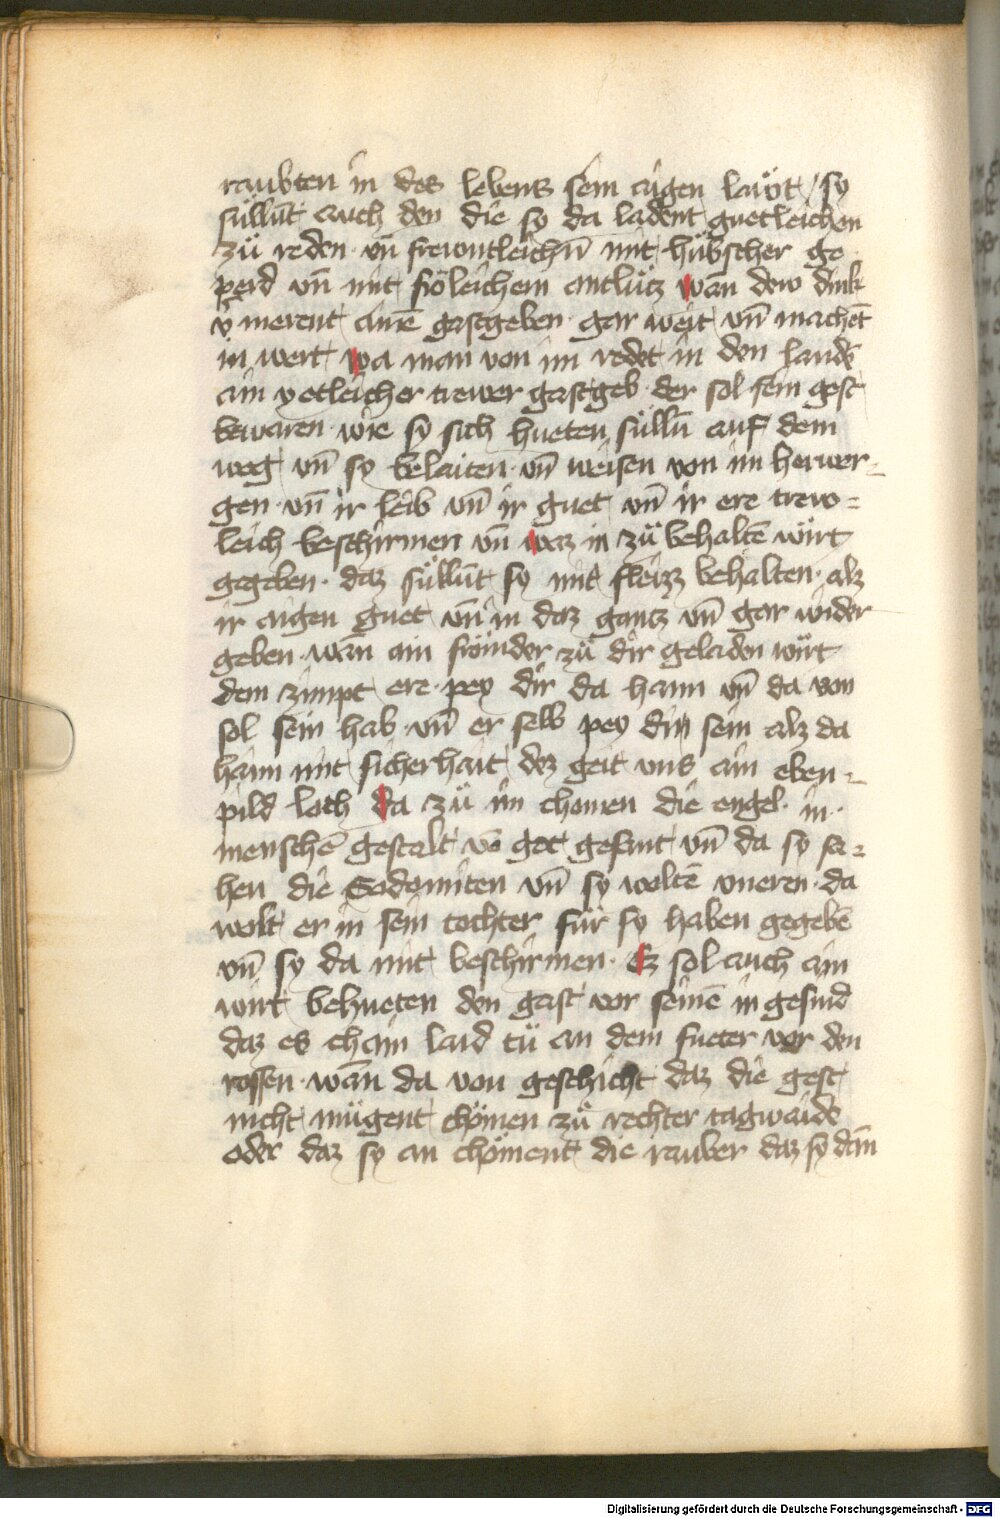 raubten in des lebens sein aigen laẅt / sy
süllent auch den die sy da ladent guetleichen
zü reden vn̄ frewntleichn̄ mit hübscher ge
perd vn̄ mit fröleichem antlütz wan̄ dew dink
merent ainē gastgeben gar weit vn̄ machēt
in wert wa man von im redet in den landē
ain yetleicher trewer gastgeb der sol sein gest
bewaren wie sy sich hueten sülln̄ auf dem
weg vn̄ sy belaiten vn̄ weisen von im herwer-
gen vn̄ ir leib vn̄ ir guet vn̄ ir ere trew=
leich beschirmen vn̄ waz in zü behaltē wirt
gegeben daz süllnt sy mit fleizz behalten alz
ir aigen guet vn̄ in daz gantz vn̄ gar wider
geben wan̄ ain frömder zü dir geladen wirt
dem zimpt ere pey dir da haim vn̄ da von
sol sein hab vn̄ er selb pey dir sein alz da
haim mit sicherhait dez geit vns ain eben-
pild loth da zü im chomen die engel in
menschē gestalt vō got gesant vn̄ da sy sa-
hen die Sodomiten vn̄ sy woltē vneren da
wolt er in sein tochter für sy haben gegebē
vn̄ sy da mit beschirmen Ez sol auch ain
wirt behueten den gast vor seinē in gesind
daz es chain laid tü an dem fueter vor den
rossen wan̄ da von geschicht daz die gest
nicht mügent chömen zü rechter tagwaidē
oder daz sy an chöment die rauber daz sy dan̄
Digitalisierung gefördert durch die Deutsche Forschungsgemeinschaft - DFG